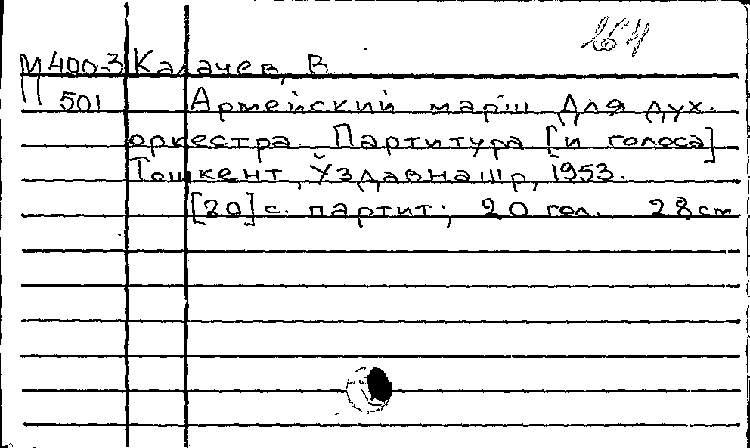 М400-3 Калачев, В.
П 501 Армейский марш для дух.
оркестра Партитура [и голоса]
Тошкент, Ўздавнашр, 1953.
[20] с. партит.; 20 гол. 28 см